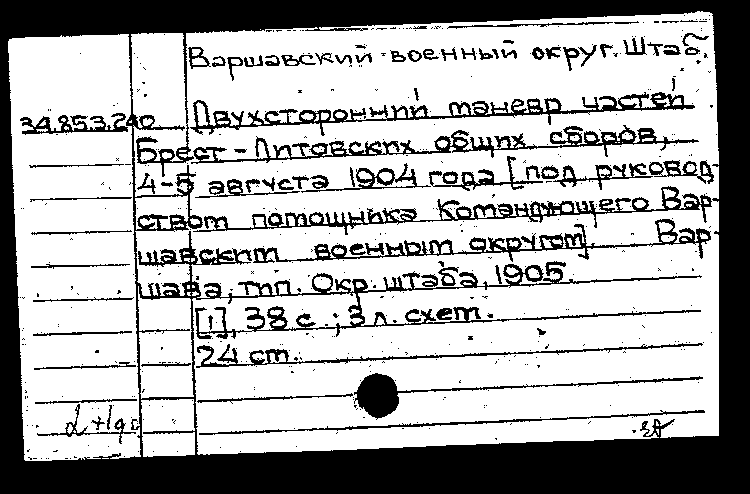 Варшавский военный округ. Штаб.
34.853.240 Двухсторонний маневр частей
Брест-Литовских общих сборов,
4-5 августа 1904 года [под руковод-
ством помощника Командующего Вар-
шавским военным округом]. Вар-
шава, тип. Окр. штаба, 1905.
[1], 38 с.; 3 л. схем.
24 см.